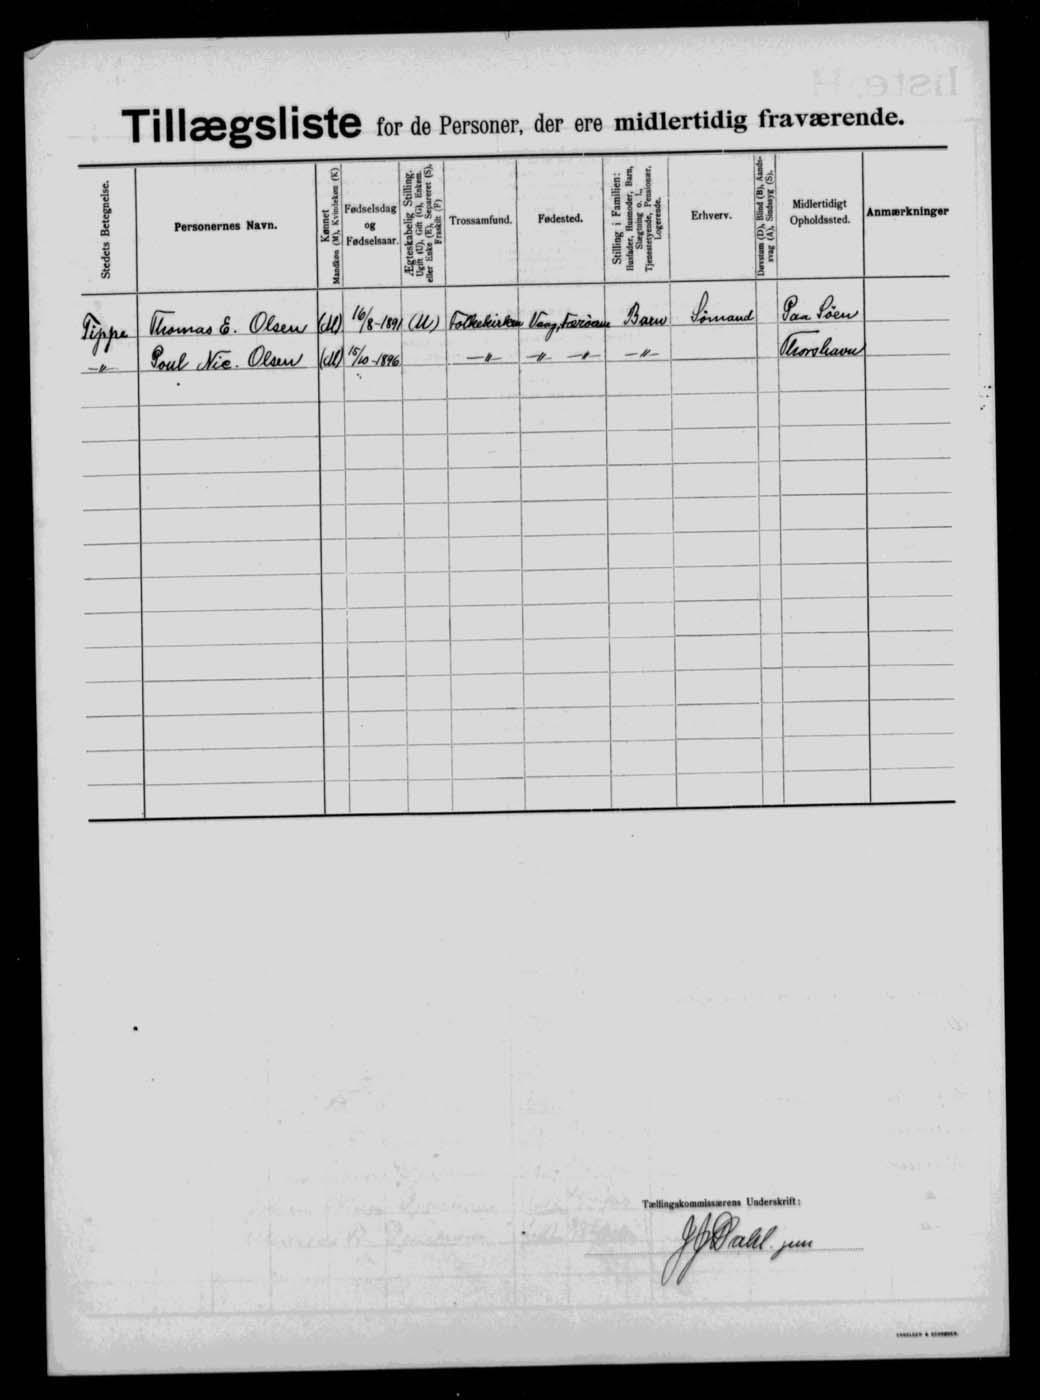 Tillægsliste for de Personer, der ere midlertidig fraværende.
Stedets Betegnelse.
Personernes Navn.
Kønnet
Mandkøn (M), Kvindekøn (K)
Fødselsdag
og
Fødselsaar.
Ægteskabelig Stilling.
Ugift (U), Gift (G), Enkem.
eller Enke (E), Separeret (S),
Fraskilt (F)
Trossamfund.
Fødested.
Stilling i Familien:
Husfader, Husmoder, Barn,
Slægtning o. l.,
Tjenestetyende, Pensionær,
Logerende.
Erhverv.
Døvstum (D), Blind (B), Aands-
svag (A), Sindssyg (S).
Midlertidigt
Opholdssted.
Anmærkninger
Tippe Thomas E. Olsen (M) 16/8-1891 (U) Folkekirken Vaag, Færöerne Barn Sömand Paa Söen
-"- Poul Nic. Olsen (M) 15/10-1896 -"- -"- -"- -"- Thorshavn
Tællingskommissærens Underskrift:
J J Dahl. jun